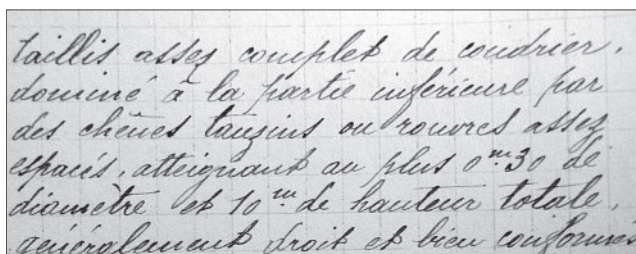 taillis assez complet de coudrier,
dominé à la partie inférieure par
des chênes tauzins ou rouvres assez
espacés, atteignant au plus 0m.30 de
diamètre et 10m de hauteur totale,
généralement droit et bien conformés